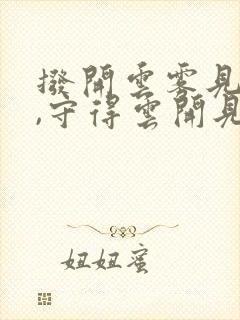 撥開雲雾見
,守得雲開見
妞妞蜜